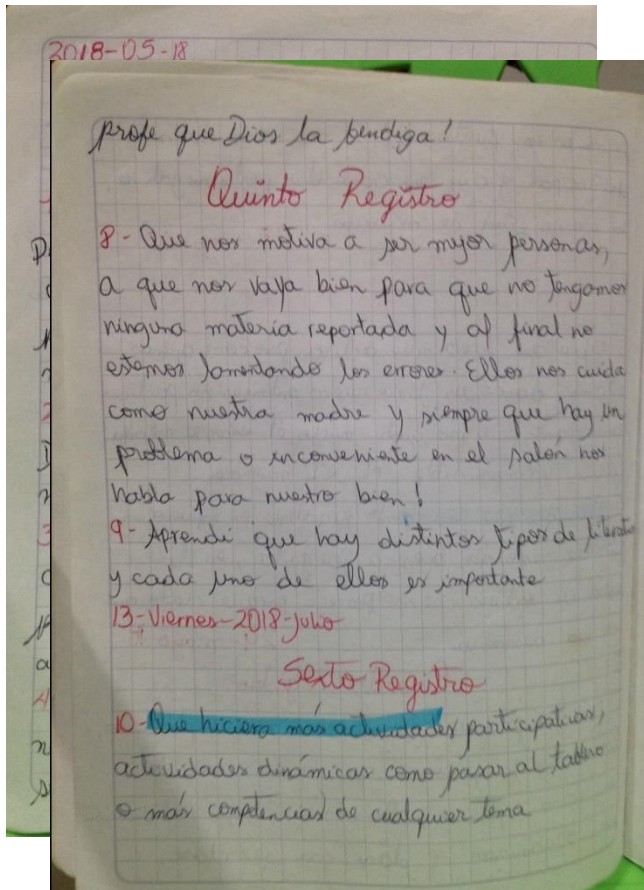 2018-05-18
profe que Dios la bendiga!
Quinto Registro
8- Que nos motiva a ser mejor personas,
a que nos vaya bien para que no tengamos
ninguna materia reportada y al final no
estemos lamentando los errores. Ellos nos cuida
como nuestra madre y siempre que hay un
problema o inconveniente en el salón nos
habla para nuestro bien!
9- Aprendí que hay distintos tipos de
y cada uno de ellos es importante
13-Viernes-2018-Julio
Sexto Registro
10- Que hiciera más actividades participativas,
actividades dinámicas como pasar al tablero
o más competencias de cualquier tema